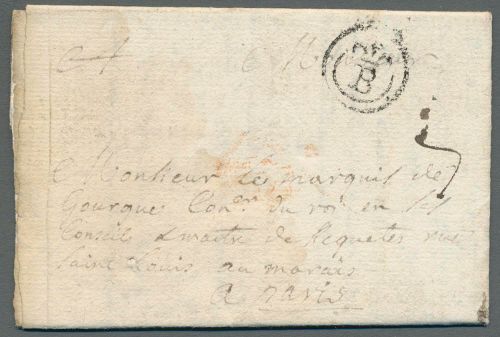 B
Monsieur le marquis de
Gourgue Con.er du roi en ses
Conseils maitre de Requetes rue
saint Louis au marais
a paris